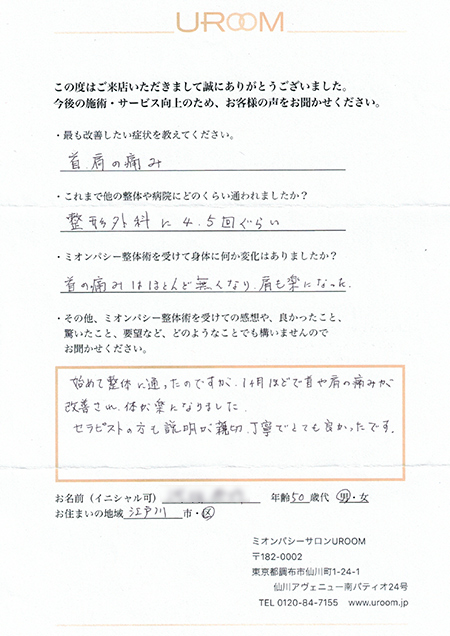 UROOM
この度はご来店いただきまして誠にありがとうございました。
今後の施術・サービス向上のため、お客様の声をお聞かせください。
・最も改善したい症状を教えてください。
首肩の痛み
・これまで他の整体や病院にどのくらい通われましたか？
整形外科に4.5回ぐらい
・ミオンパシー整体術を受けて身体に何か変化はありましたか？
首の痛みはほとんど無くなり、肩も楽になった.
・その他、ミオンパシー整体術を受けての感想や、良かったこと、
驚いたこと、要望など、どのようなことでも構いませんので
お聞かせください。
始めて整体に通ったのですが、1ヶ月ほどで首や肩の痛みが
改善され、体が楽になりました.
セラピストの方も説明が親切、丁寧でとても良かったです.
お名前（イニシャル可） 年齢50歳代 男・女
お住まいの地域 江戸川 市・区
ミオンパシーサロンUROOM
〒182-0002
東京都調布市仙川町1-24-1
仙川アヴェニュー南パティオ24号
TEL 0120-84-7155 www.uroom.jp